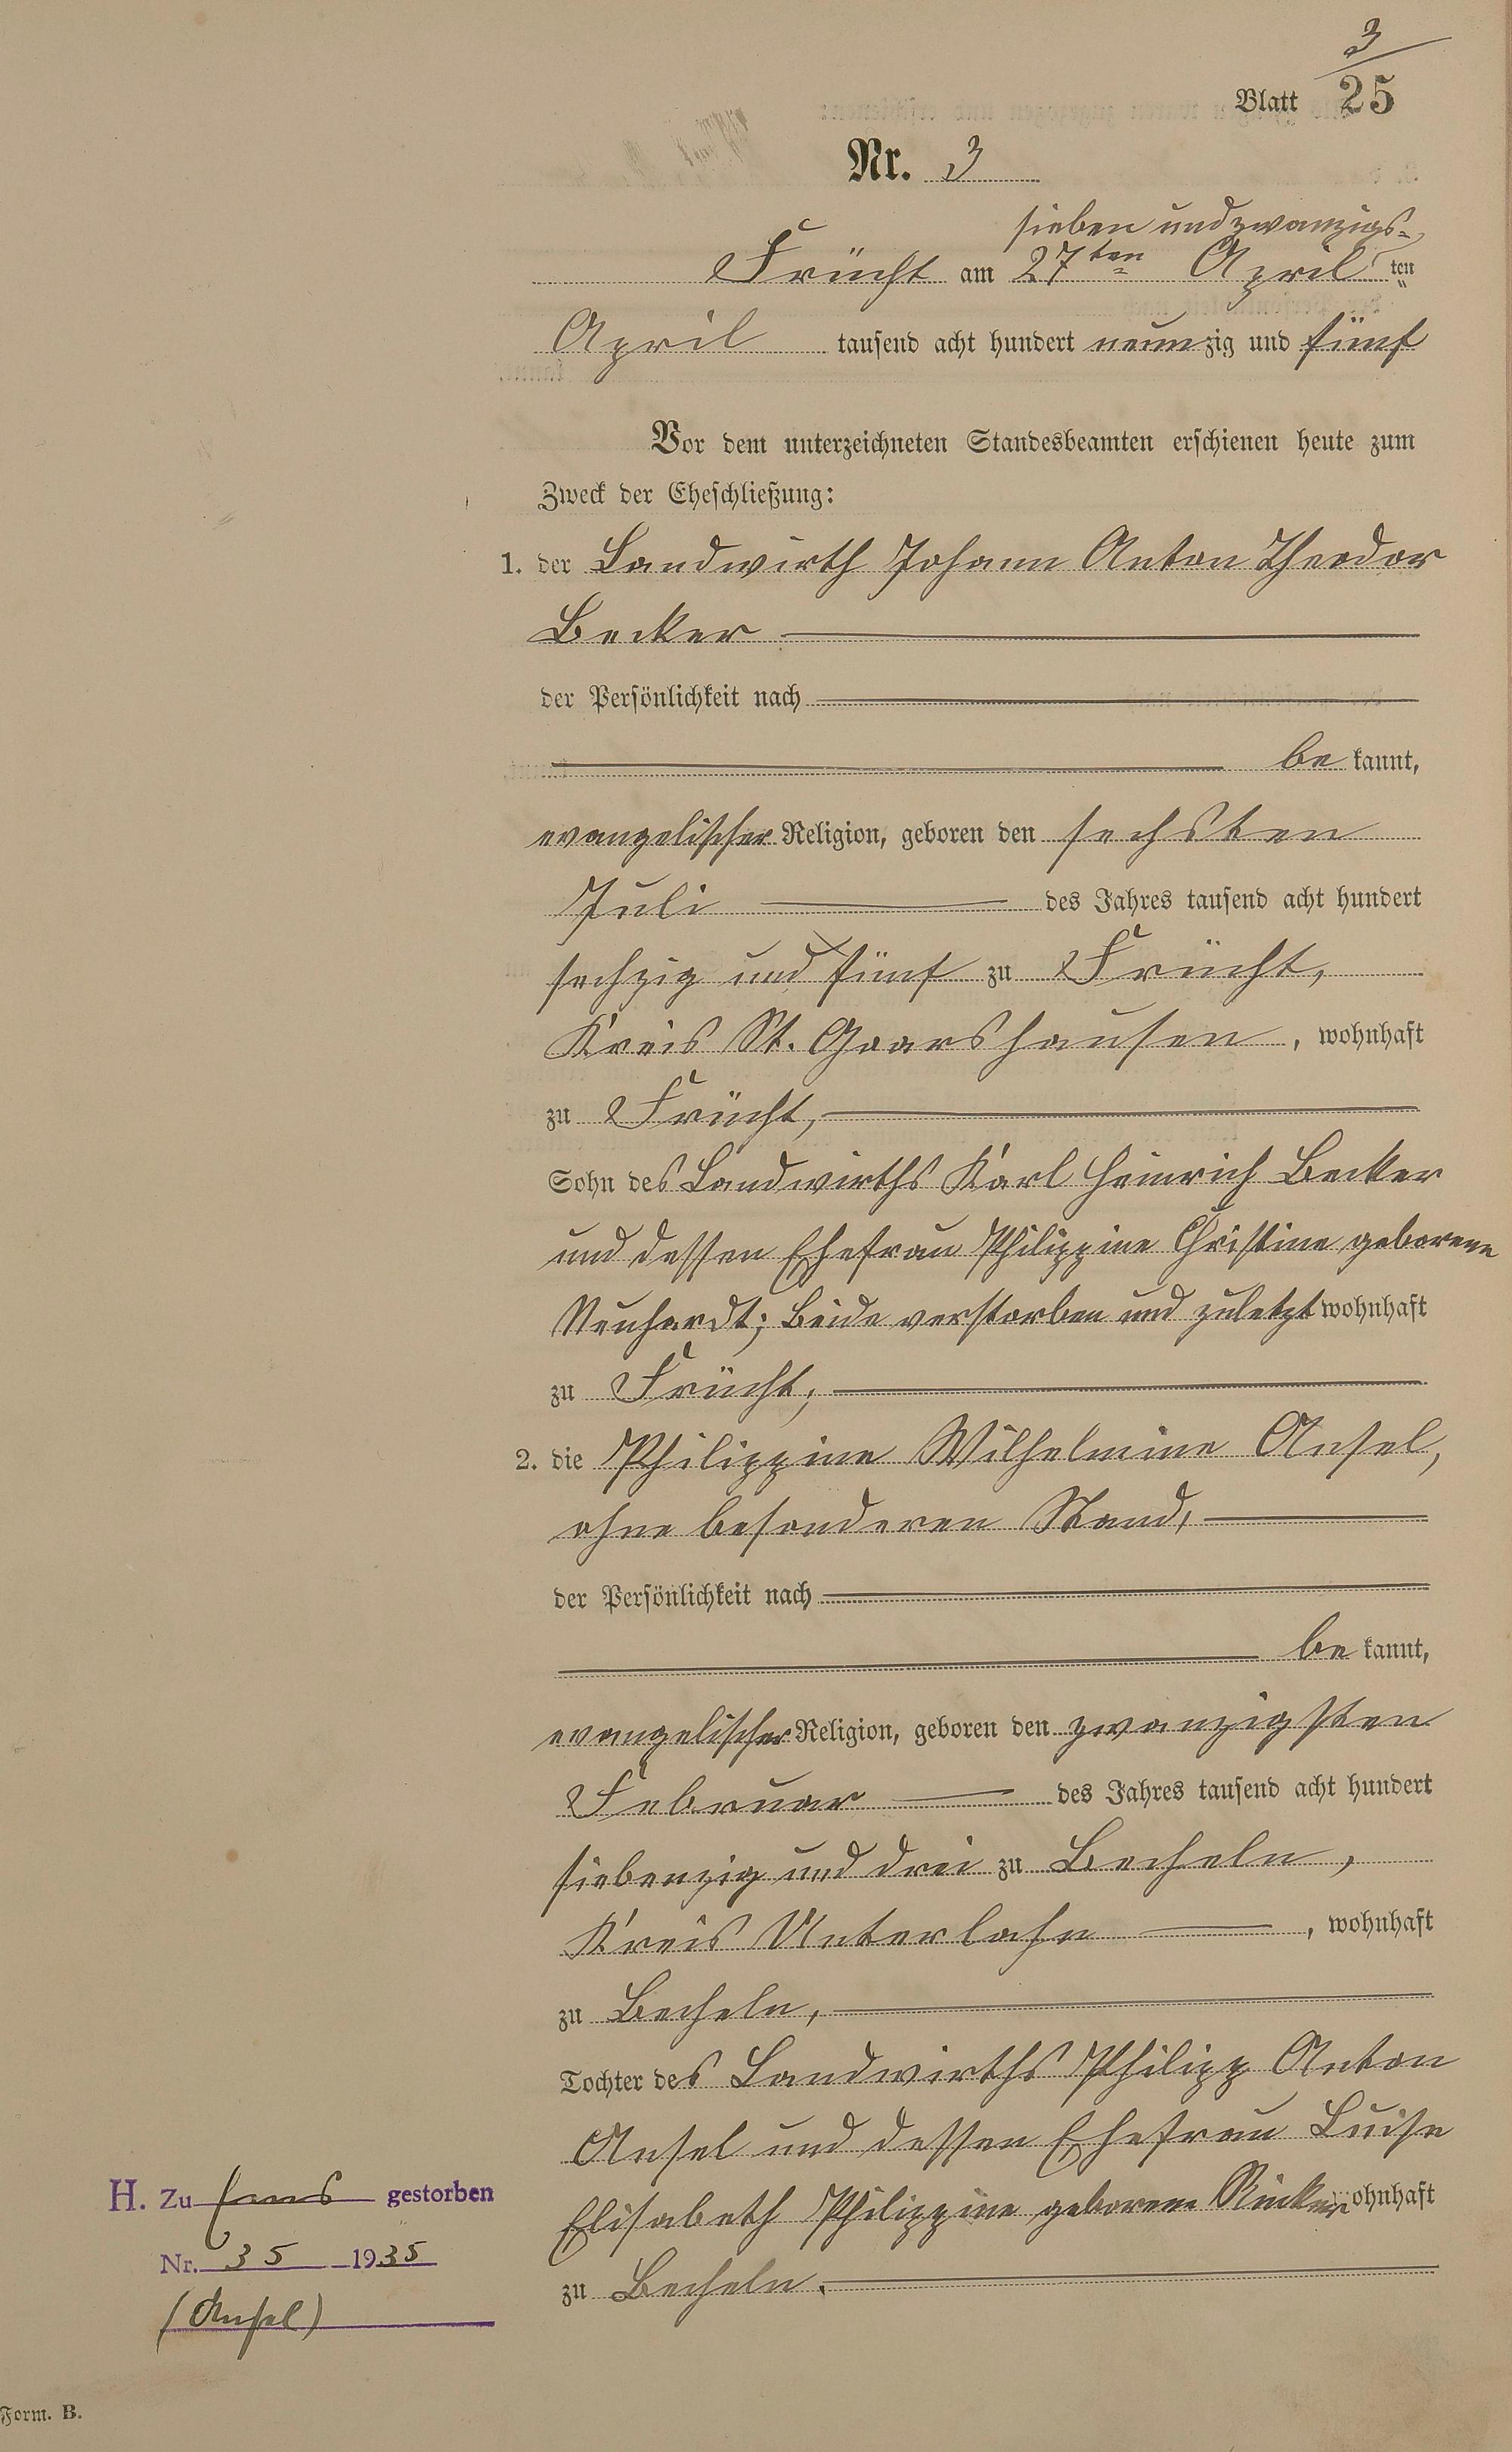 3
Blatt 25
Nr. 3
sieben und zwanzigs-
Frücht am 27ten April ten
April tausend acht hundert neunzig und fünf
Vor dem unterzeichneten Standesbeamten erschienen heute zum
Zweck der Eheschließung:
1. der Landwirth Johann Anton Theodor
Becker
der Persönlichkeit nach
be kannt,
evangelischer Religion, geboren den sechsten
Juli des Jahres tausend acht hundert
sechzig und fünf zu Frücht,
Kreis St. Goarshausen, wohnhaft
zu Frücht,
Sohn des Landwirths Karl Heinrich Becker
und dessen Ehefrau Philippine Christine geborene
Neuhardt; beide verstorben und zuletzt wohnhaft
zu Frücht;
2. die Philippine Wilhelmine Ansel,
ohne besonderen Stand,
der Persönlichkeit nach
be kannt,
evangelischer Religion, geboren den zwanzigsten
Februar des Jahres tausend acht hundert
siebenzig und drei zu Becheln,
Kreis Unterlahn, wohnhaft
zu Becheln,
Tochter des Landwirths Philipp Anton
Ansel und dessen Ehefrau Luise
Elisabeth Philippine geborene wohnhaft
zu Becheln.
H. Zu Ems gestorben
Nr. 35 1935
(Ansel)
Form. B.